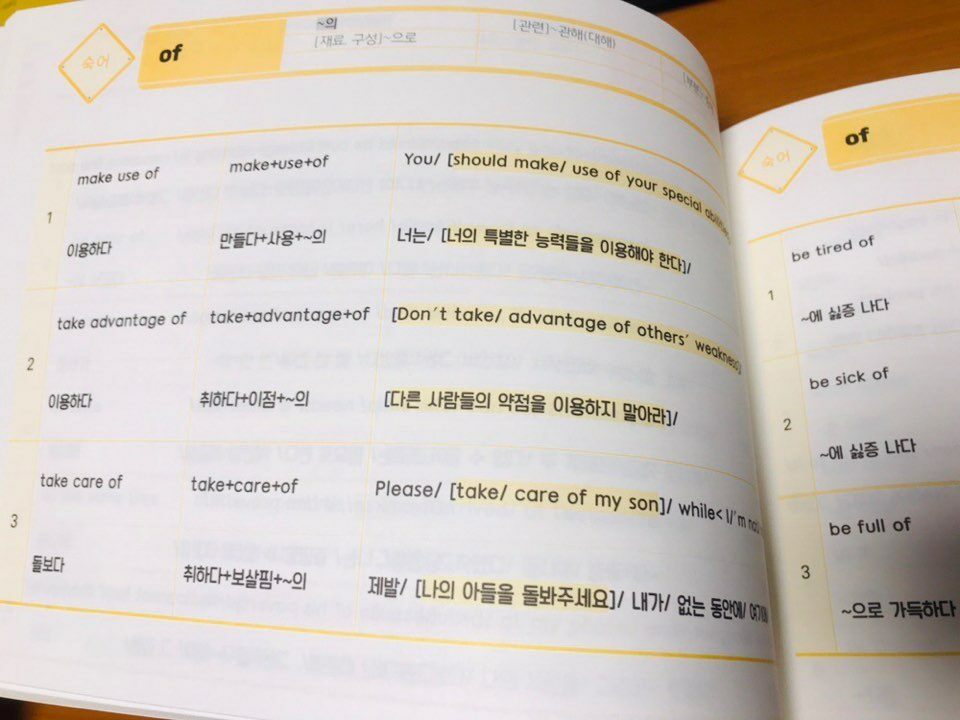 숙어
of
~의
[재료. 구성]~으로
[관련]~관해(대해)
1
make use of
make+use+of
You/ [should make/ use of your special abilities]
이용하다
만들다+사용+~의
너는/ [너의 특별한 능력들을 이용해야 한다]/
2
take advantage of
take+advantage+of
[Don't take/ advantage of others' weakness]
이용하다
취하다+이점+~의
[다른 사람들의 약점을 이용하지 말아라]/
3
take care of
take+care+of
Please/ [take/ care of my son]/ while< I/'m
돌보다
취하다+보살핌+~의
제발/ [나의 아들을 돌봐주세요]/ 내가/ 없는 동안에/
숙어
of
1
be tired of
~에 싫증 나다
2
be sick of
~에 싫증 나다
3
be full of
~으로 가득하다